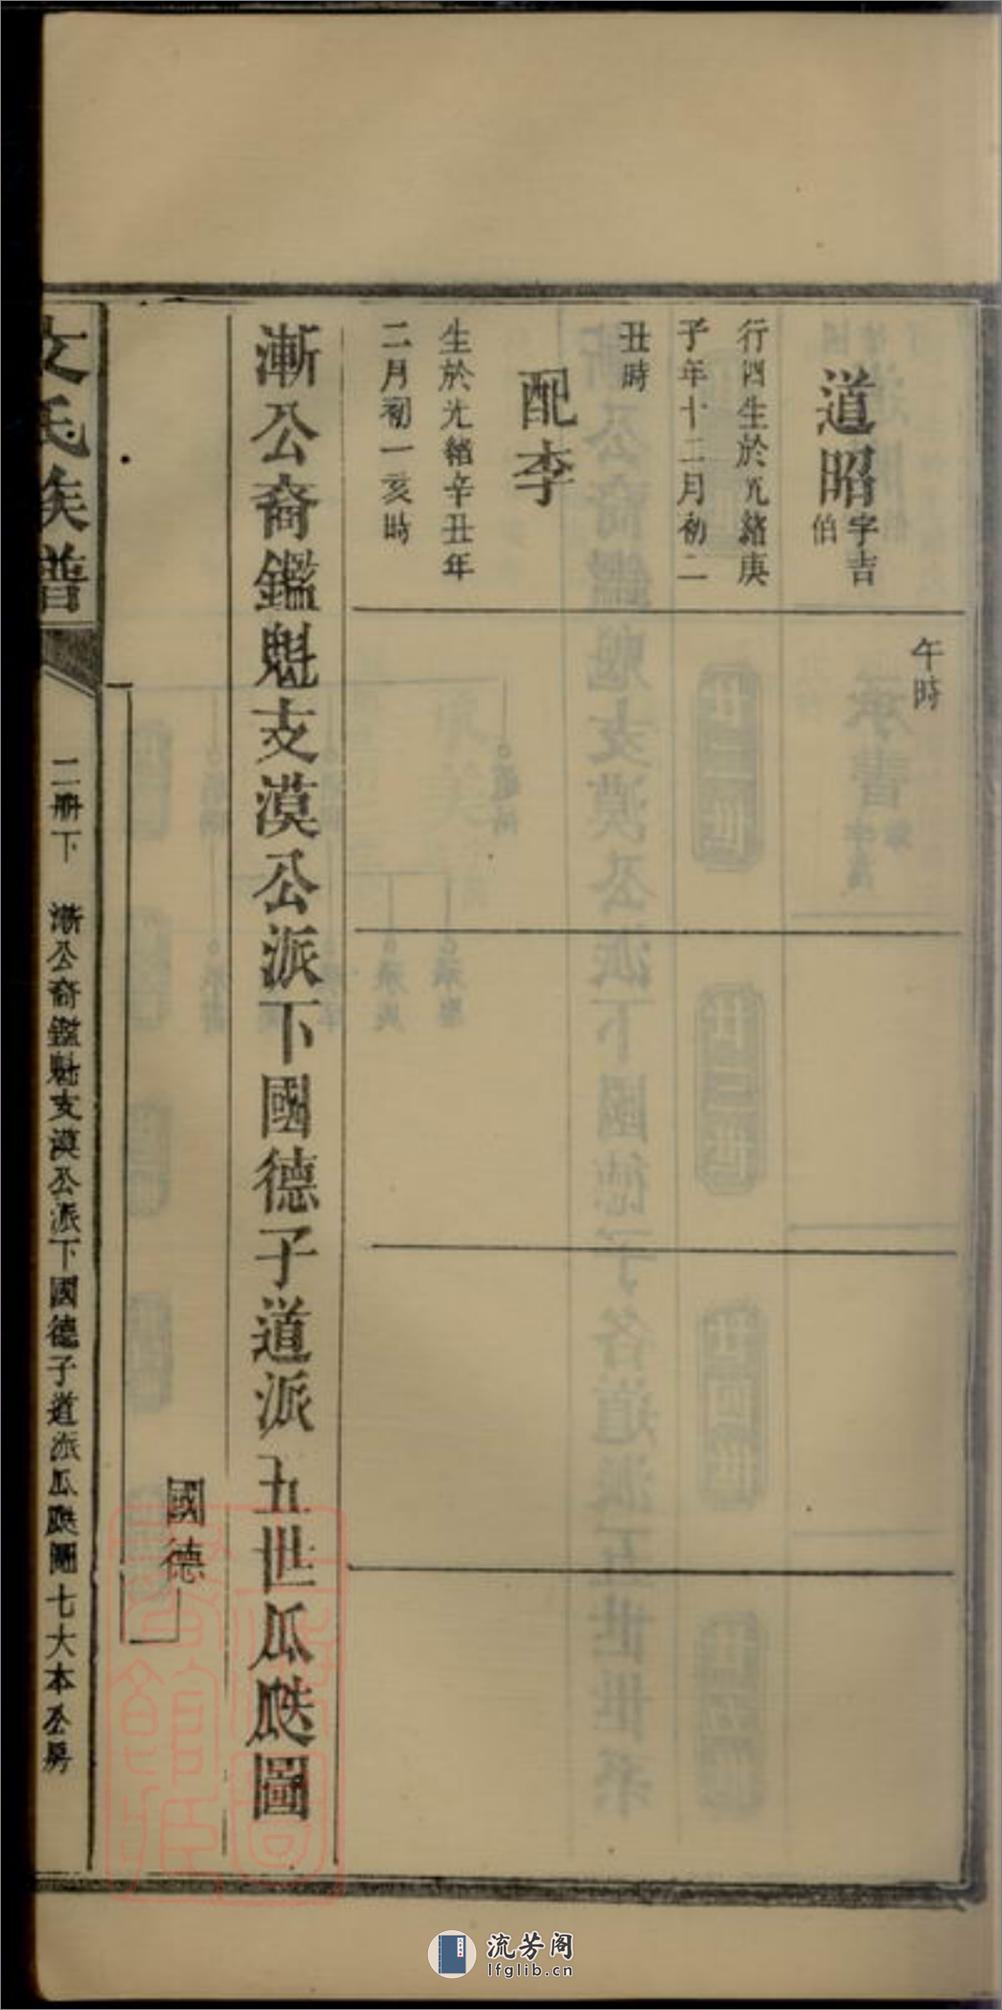 午時
道昭
字吉
伯
行四生於光緒庚
子年十二月初二
丑時
配李
生於光緒辛丑年
二月初一亥時
漸公裔鑑魁支漠公派下國德子道派五世瓜瓞圖
國德
文氏族譜
二冊下
漸公裔鑑魁支漠公派下國德子道派瓜瓞圖七大本公房
流芳阁
lfglib.cn